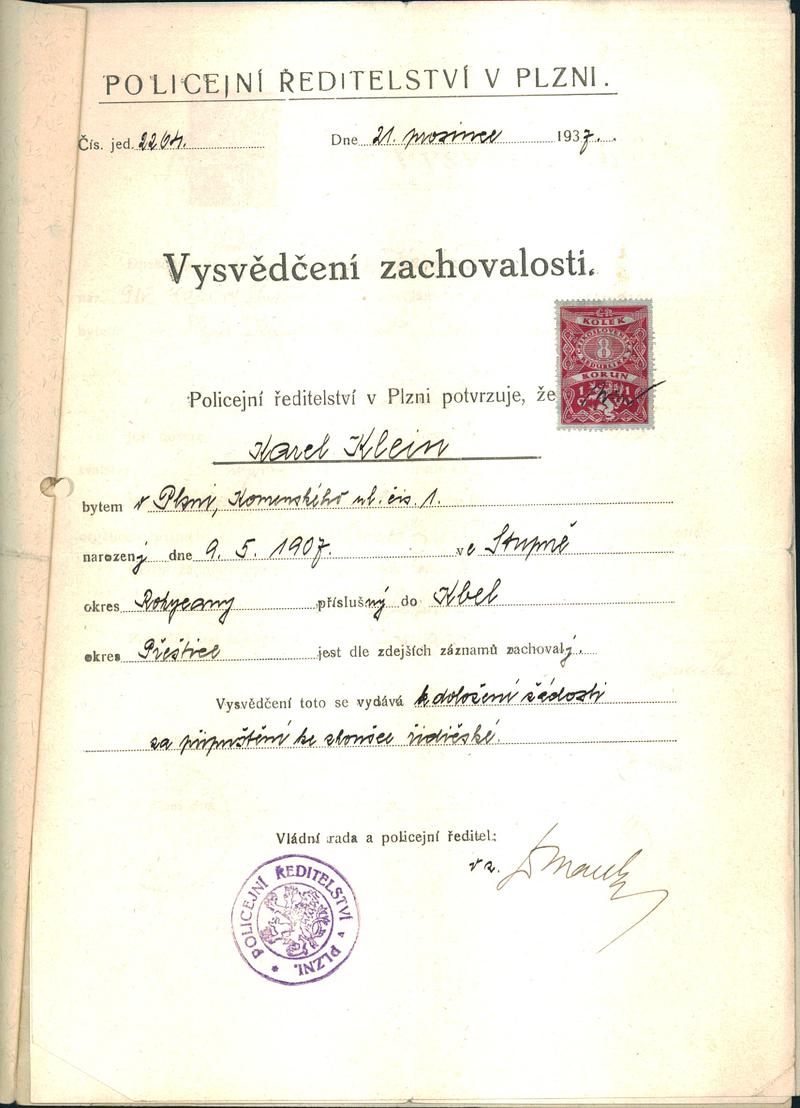 POLICEJNÍ ŘEDITELSTVÍ V PLZNI.
Čís. jed. 2264. Dne 21. prosince 1937.
Vysvědčení zachovalosti.
KOLEK
8
KORUN
Policejní ředitelství v Plzni potvrzuje, že
Karel Klein
bytem v Plzni, Komenského ul. čís. 1.
narozený dne 9. 5. 1907. ve Stupně
okres Rokycany příslušný do Kbel
okres Přeštice jest dle zdejších záznamů zachovalý.
Vysvědčení toto se vydává k doložení žádosti
za připuštění ke zkoušce řidičské.
Vládní rada a policejní ředitel:
v z.
POLICEJNÍ ŘEDITELSTVÍ v PLZNI.